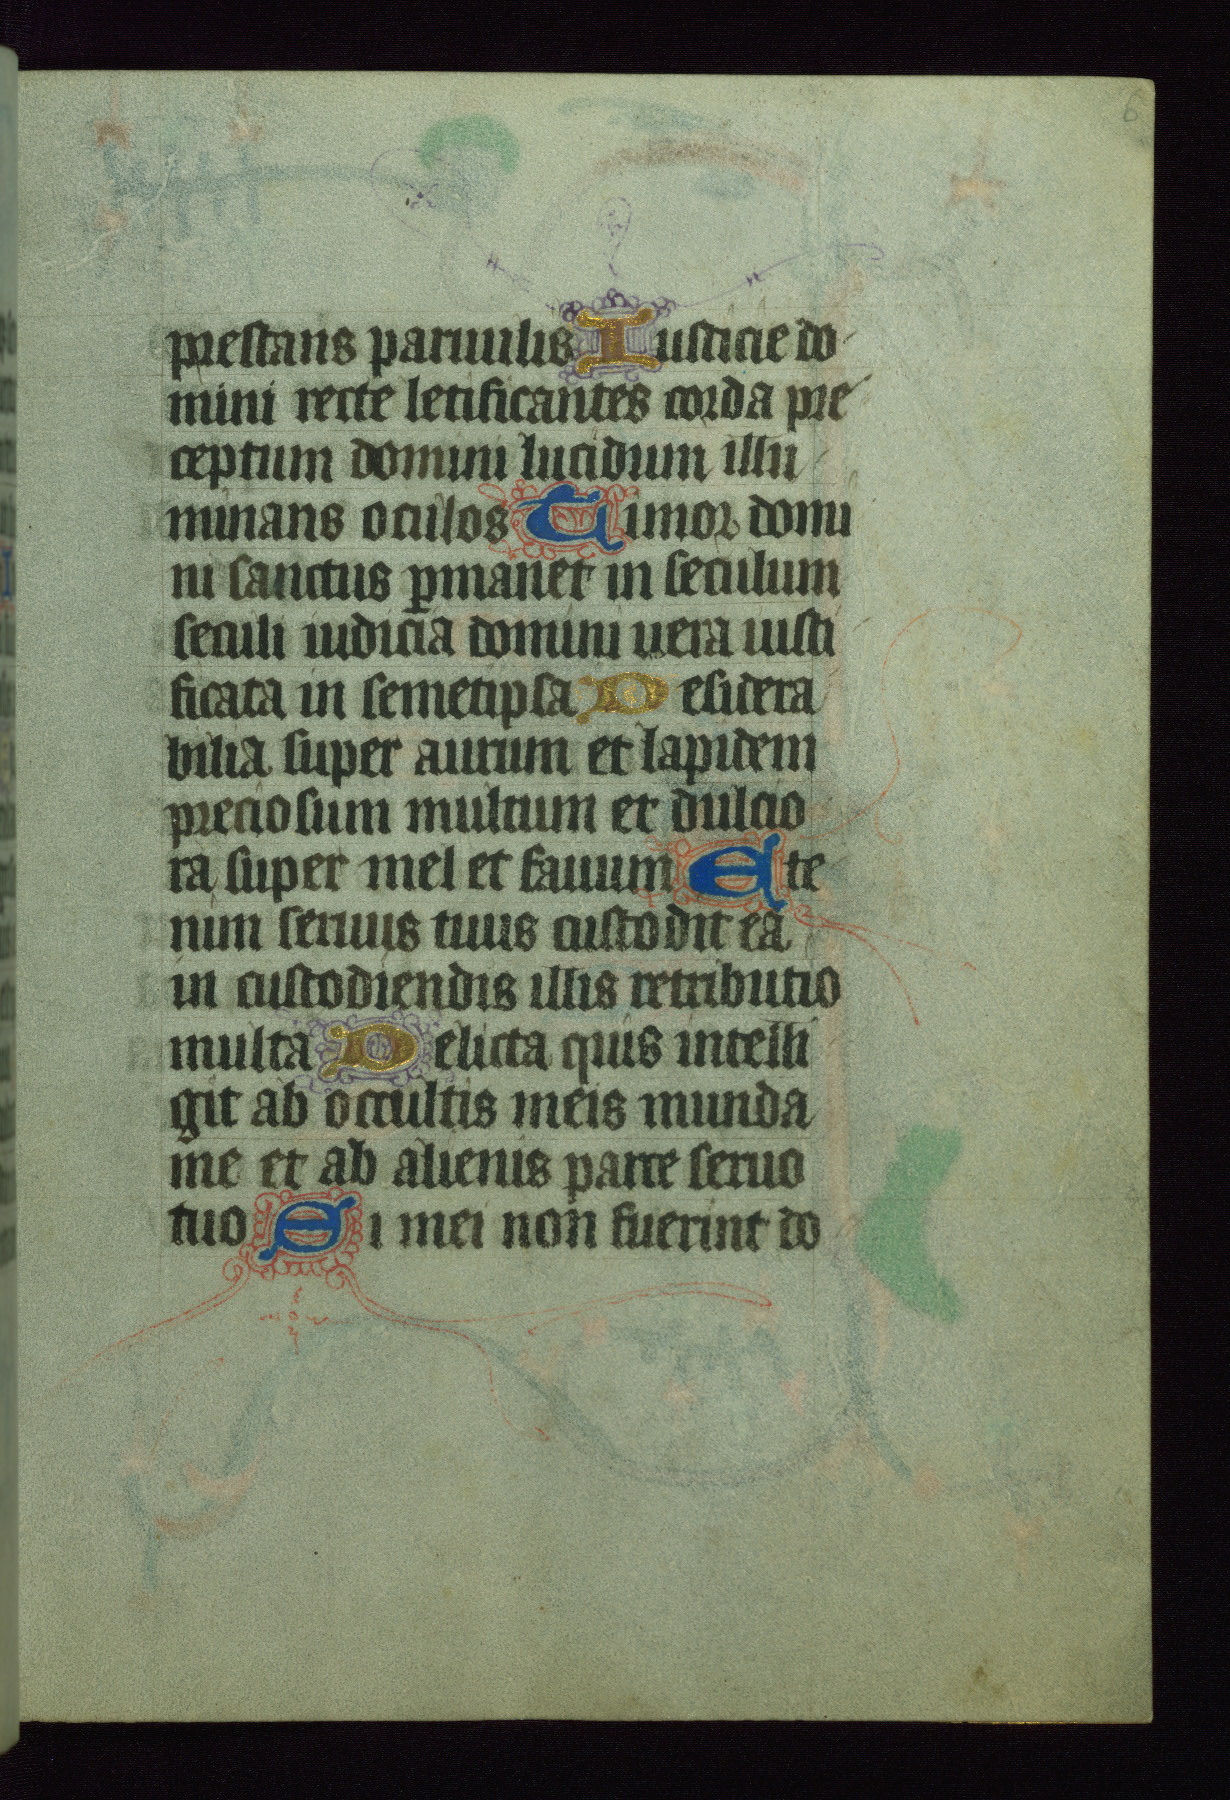 6
prestans paruulis Iusticie do
mini recte letificantes corda pre
ceptum domini lucidum illu
minans oculos Timor domi
ni sanctus ꝑmanet in seculum
seculi iudicia domini uera iusti
ficata in semetipsa Desidera
bilia super aurum et lapidem
preciosum multum et dulcio
ra super mel et fauum Ete
nim seruus tuus custodit ea
in custodiendis illis retributio
multa Delicta quis intelli
git ab occultis meis munda
me et ab alienis parce seruo
tuo Si mei non fuerint do